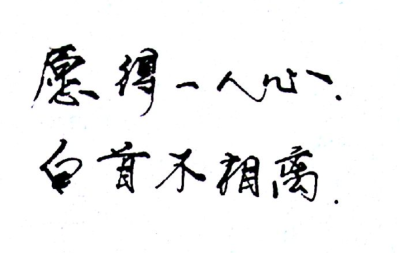 愿得一人心.
白首不相离.